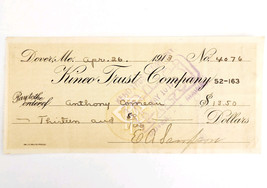 Dover, Me. Apr. 26. 1913 No. 4076
Kineo Trust Company 52-163
Pay to the order of Anthony Comeau $13.50
Thirteen and 50 Dollars
E. R. Sampson